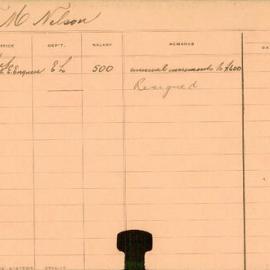 M Nelson
OFFICE DEP'T. SALARY REMARKS
E.L. 500 annual increments to £600
Resigned